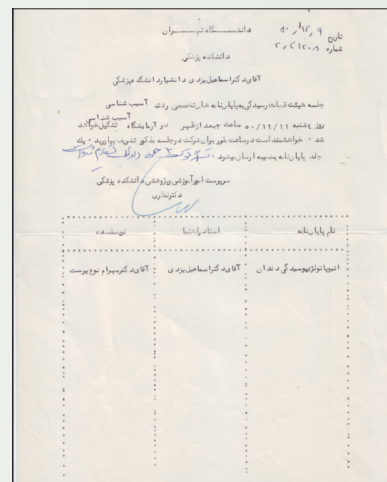 دانشگاه تهران
تاریخ ۵۰/۱۲/۹
شماره
دانشکده پزشکی
آقای دکتر اسماعیل یزدی دانشیار دانشکده پزشکی
جلسه هیئت قضات رسیدگی به پایان نامه های تخصصی رشته آسیب شناسی
روز شنبه ۵۰/۱۲/۱۱ ساعت ۳ بعد از ظهر در آزمایشگاه آسیب شناسی تشکیل خواهد
شد . خواهشمند است در ساعت مقرر برای شرکت در جلسه مذکور تشریف بیاورید . یک
جلد پایان نامه بضمیمه ارسال میشود .
سرپرست امور آموزشی و پژوهشی دانشکده پزشکی
دکتر
نام پایان نامه استاد راهنما نویسنده
اتیوپاتولژی پوسیدگی دندان آقای دکتر اسماعیل یزدی آقای دکتر بهرام نوع پرست